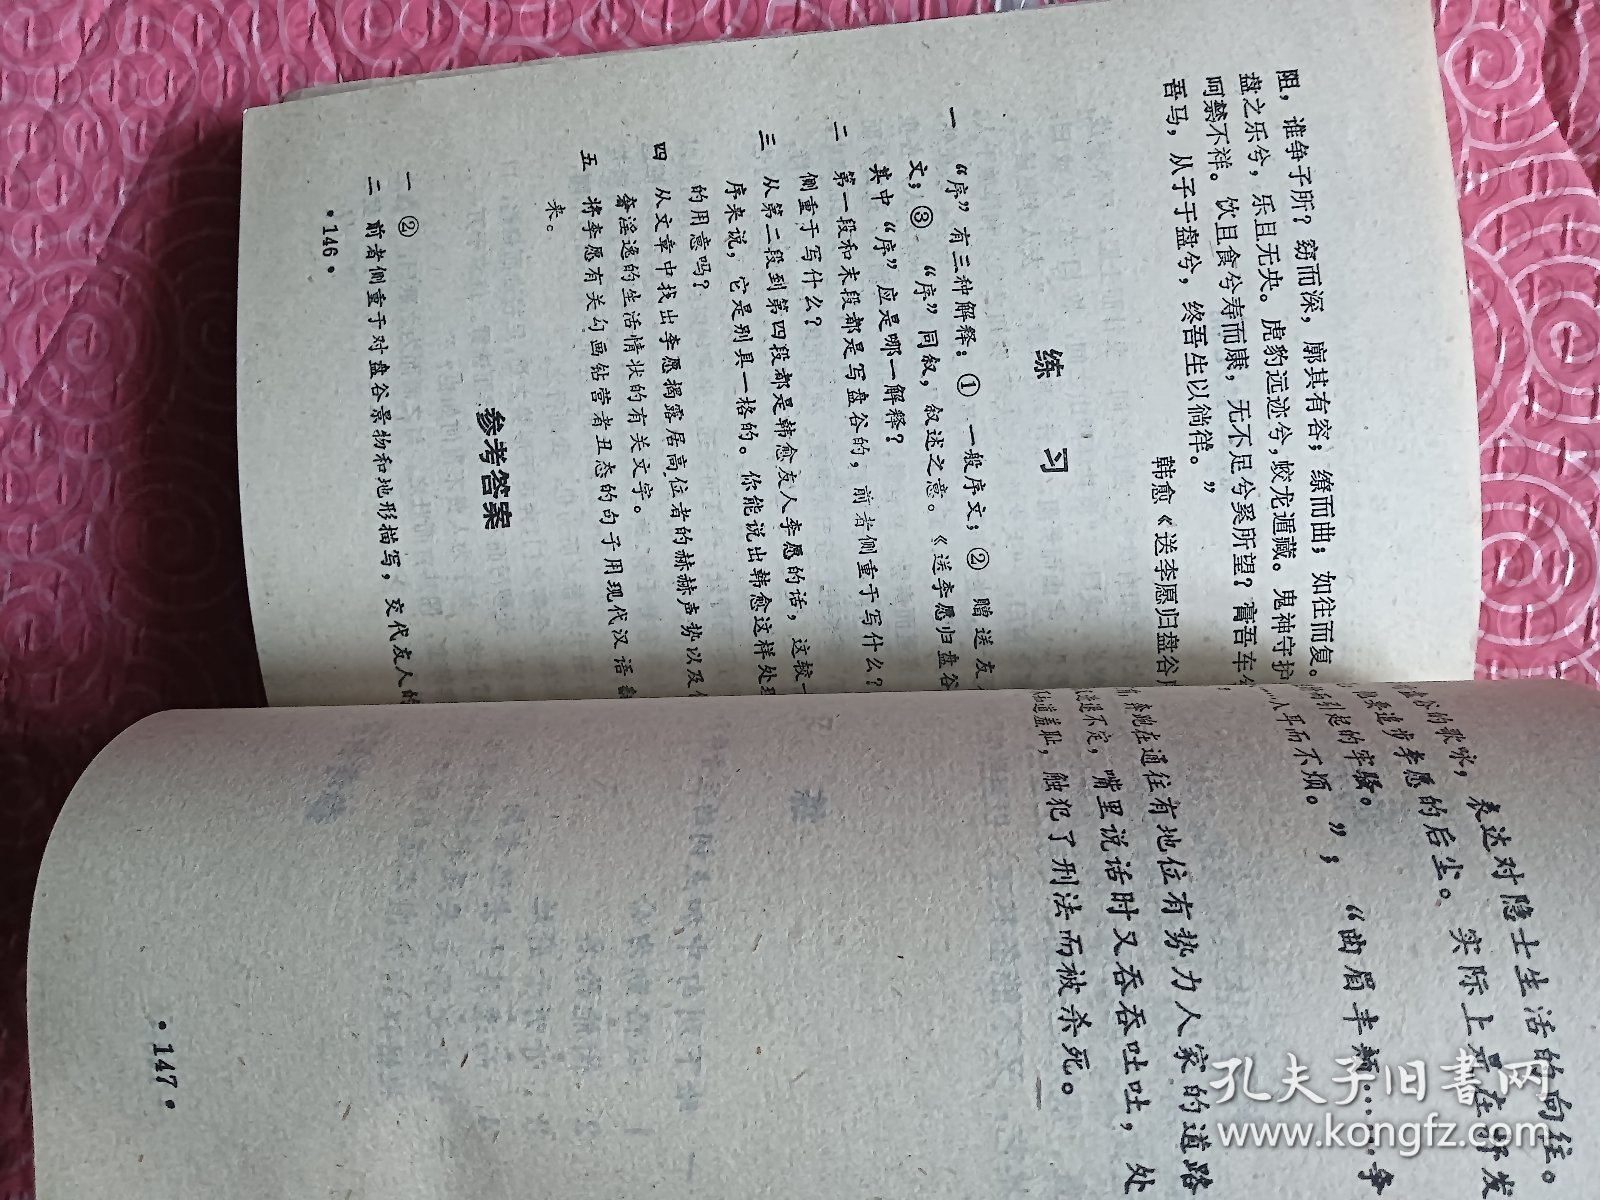 阻，谁争子所？窈而深，廓其有容；缭而曲，如往而复。
盘之乐兮，乐且无央。虎豹远迹兮，蛟龙遁藏。鬼神守护
呵禁不祥。饮且食兮寿而康，无不足兮奚所望？膏吾车兮
吾马，从子于盘兮，终吾生以徜徉。”
韩愈《送李愿归盘谷序
练 习
一 “序”有三种解释：① 一般序文；② 赠送友人
文；③ “序”同叙，叙述之意。《送李愿归盘谷
其中“序”应是哪一解释？
二 第一段和末段都是写盘谷的，前者侧重于写什么？
侧重于写什么？
三 从第二段到第四段都是韩愈友人李愿的话，这较一
序来说，它是别具一格的。你能说出韩愈这样处理
的用意吗？
四 从文章中找出李愿揭露居高位者的赫赫声势以及
奢淫逸的生活情状的有关文字。
五 将李愿有关勾画钻营者丑态的句子用现代汉语
来。
参考答案
一 ②
二 前者侧重于对盘谷景物和地形描写，交代友人的
·146·
谷的歌咏，表达对隐士生活的向往。
步李愿的后尘。实际上是在抒发
引起的牢骚。
耳而不烦。”；“曲眉丰颊……争
奔跑在通往有地位有势力人家的道路
不定，嘴里说话时又吞吞吐吐，处
知道羞耻，触犯了刑法而被杀死。
·147·
孔夫子旧书网
www.kongfz.com